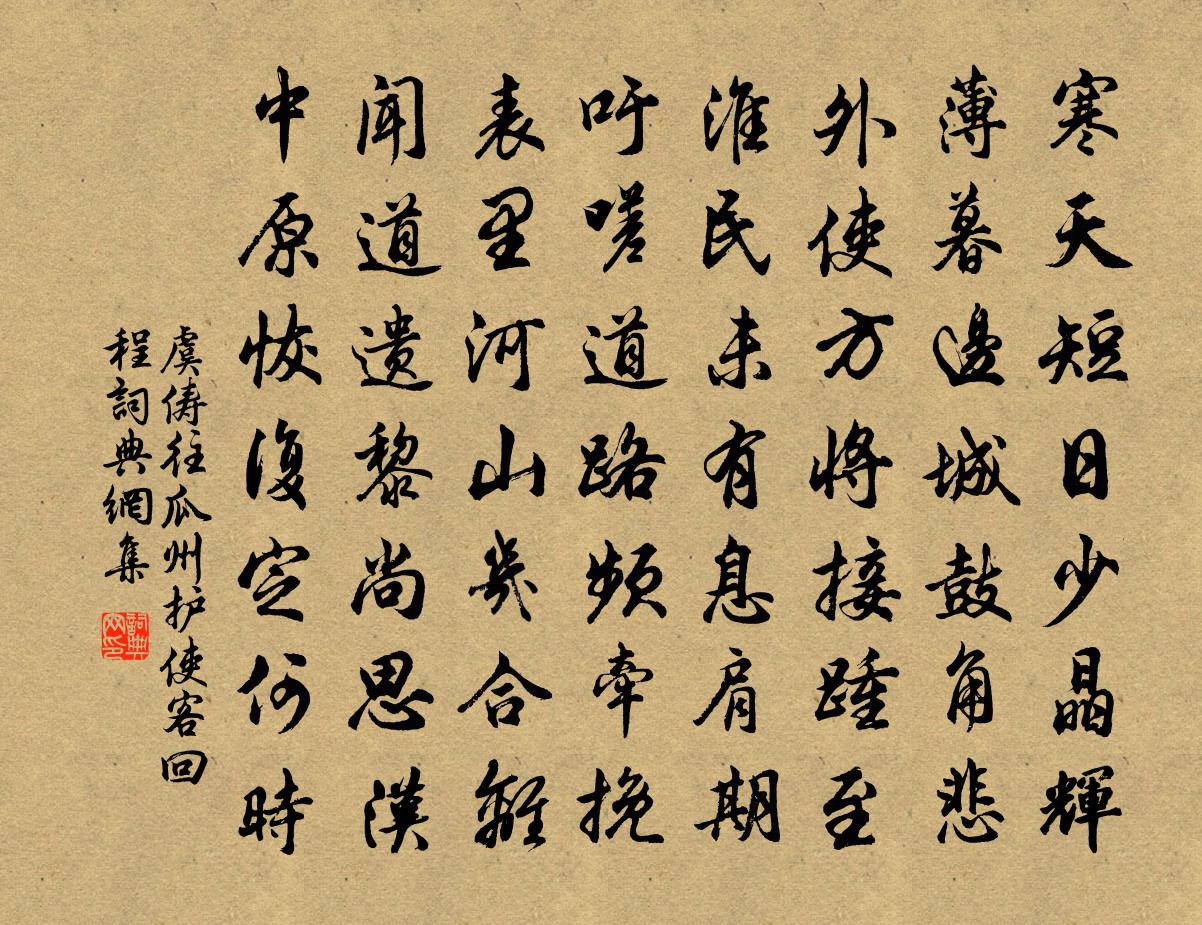 寒天短日少晶輝
薄暮邊城鼓角悲
外使方將接踵至
淮民未有息肩期
吁嗟道路頻牽挽
表里河山幾合離
闻道遗黎尚思漢
中原恢復定何時
虞儔往瓜州护使客回
程詞典網集
詞典
网印